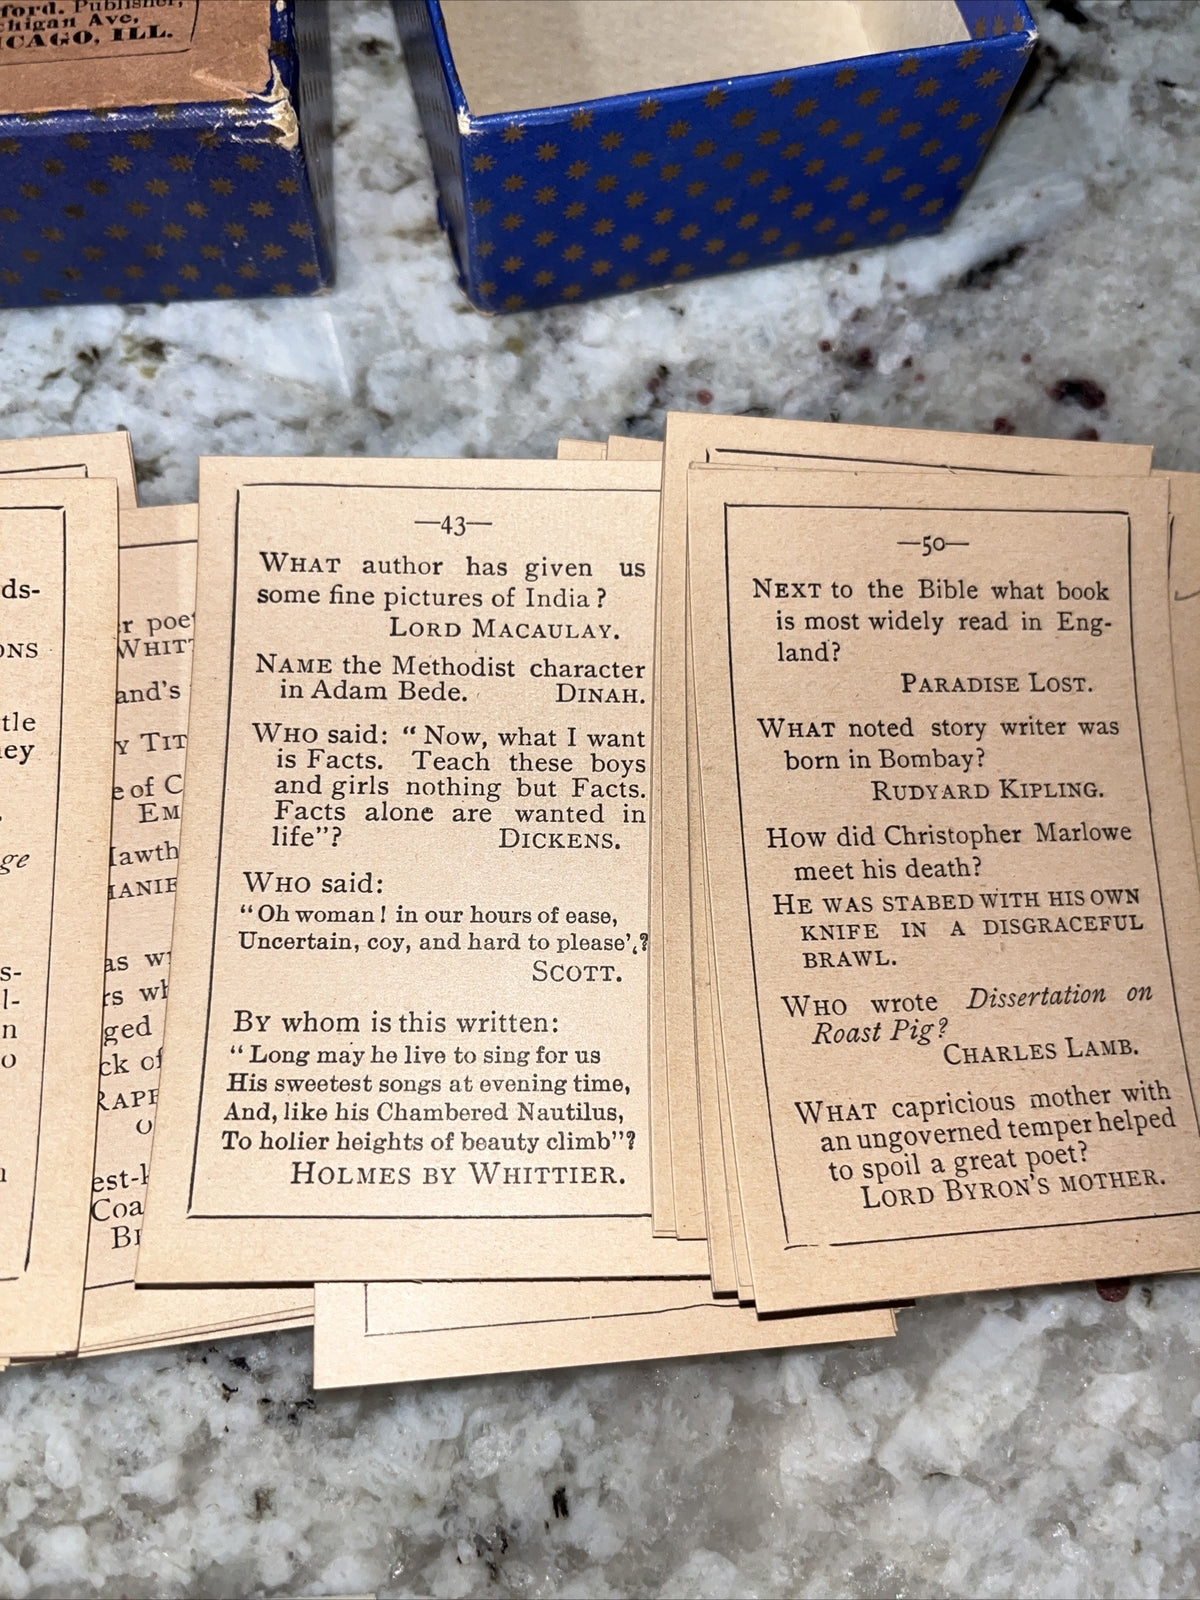 ford. Publisher,
chigan Ave,
ICAGO, ILL.
ds-
ONS
tle
ey
ge
s-
l-
n
o
r poet
WHITT
and's
Y TIT
e of C
EM
Hawth
HANIE
as wr
rs wh
ged
ck of
RAPE
O
est-k
Coa
BR
—43—
WHAT author has given us
some fine pictures of India?
LORD MACAULAY.
NAME the Methodist character
in Adam Bede. DINAH.
WHO said: "Now, what I want
is Facts. Teach these boys
and girls nothing but Facts.
Facts alone are wanted in
life"? DICKENS.
WHO said:
"Oh woman! in our hours of ease,
Uncertain, coy, and hard to please'.?
SCOTT.
BY whom is this written:
"Long may he live to sing for us
His sweetest songs at evening time,
And, like his Chambered Nautilus,
To holier heights of beauty climb"?
HOLMES BY WHITTIER.
—50—
NEXT to the Bible what book
is most widely read in Eng-
land?
PARADISE LOST.
WHAT noted story writer was
born in Bombay?
RUDYARD KIPLING.
How did Christopher Marlowe
meet his death?
HE WAS STABED WITH HIS OWN
KNIFE IN A DISGRACEFUL
BRAWL.
WHO wrote Dissertation on
Roast Pig?
CHARLES LAMB.
WHAT capricious mother with
an ungoverned temper helped
to spoil a great poet?
LORD BYRON'S MOTHER.